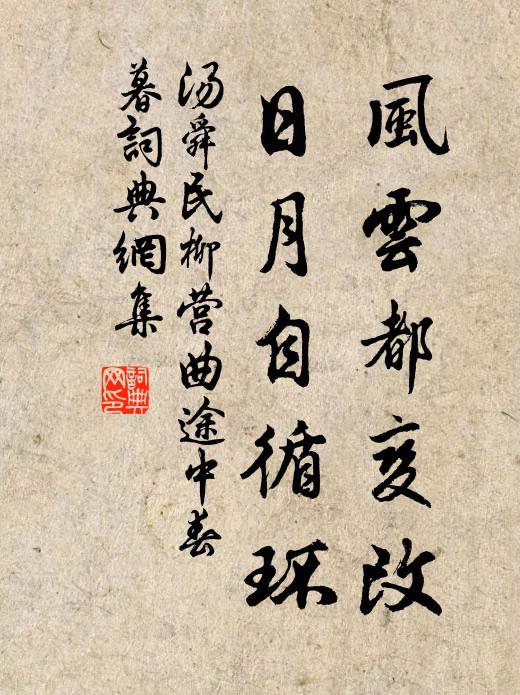 風雲都变改
日月自循环
汤舜民柳营曲途中春
暮詞典網集
詞典
网印